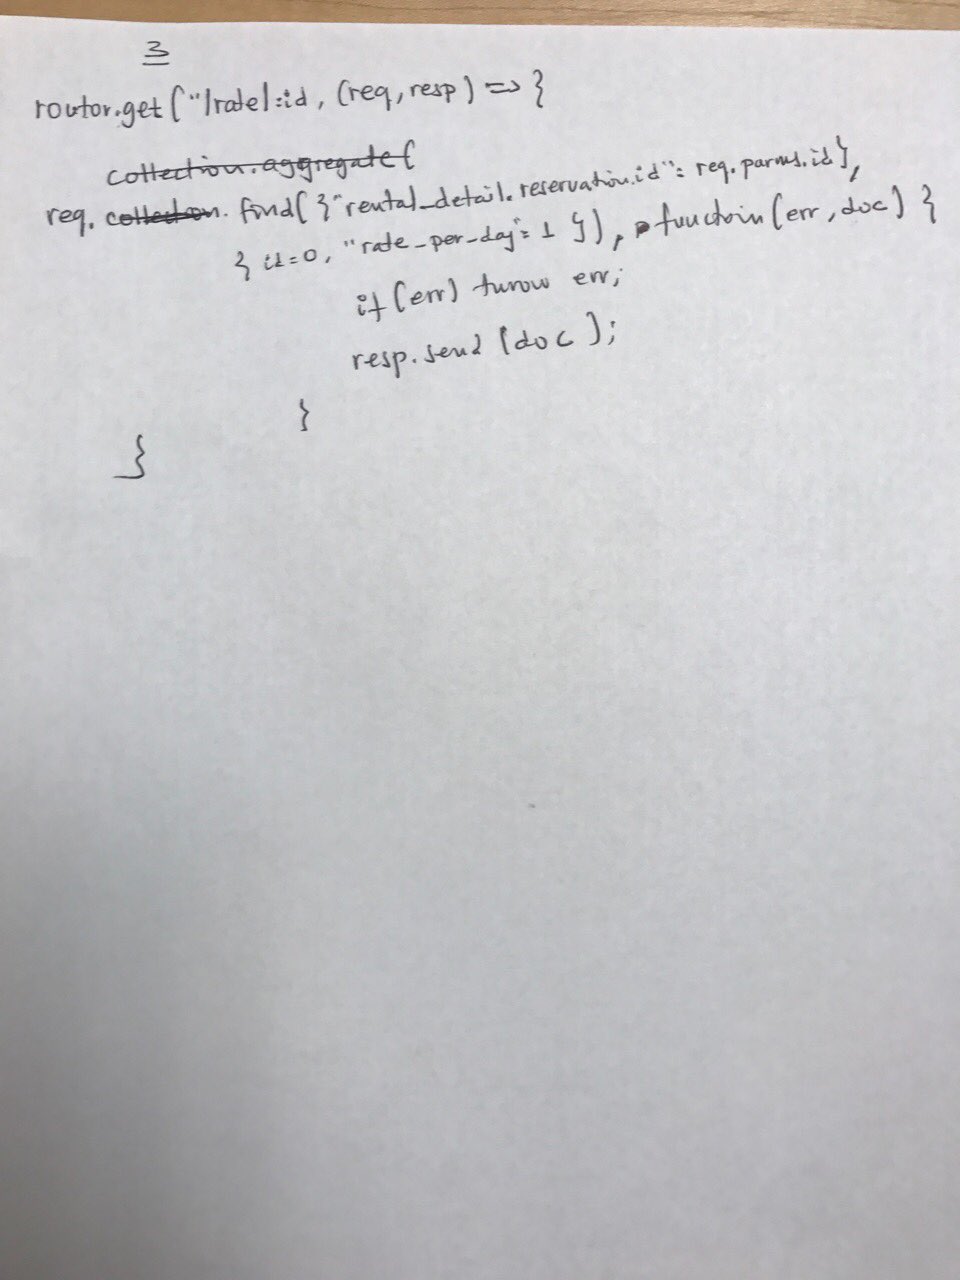 3
router.get("/rate/:id, (req, resp) => {
collection.aggregate(
req. collection. find( {"rental_detail.reservation.id": req.parms.id},
{ id=0, "rate_per_day"=1 }), function(err, doc) {
if (err) throw err;
resp.send (doc);
}
}